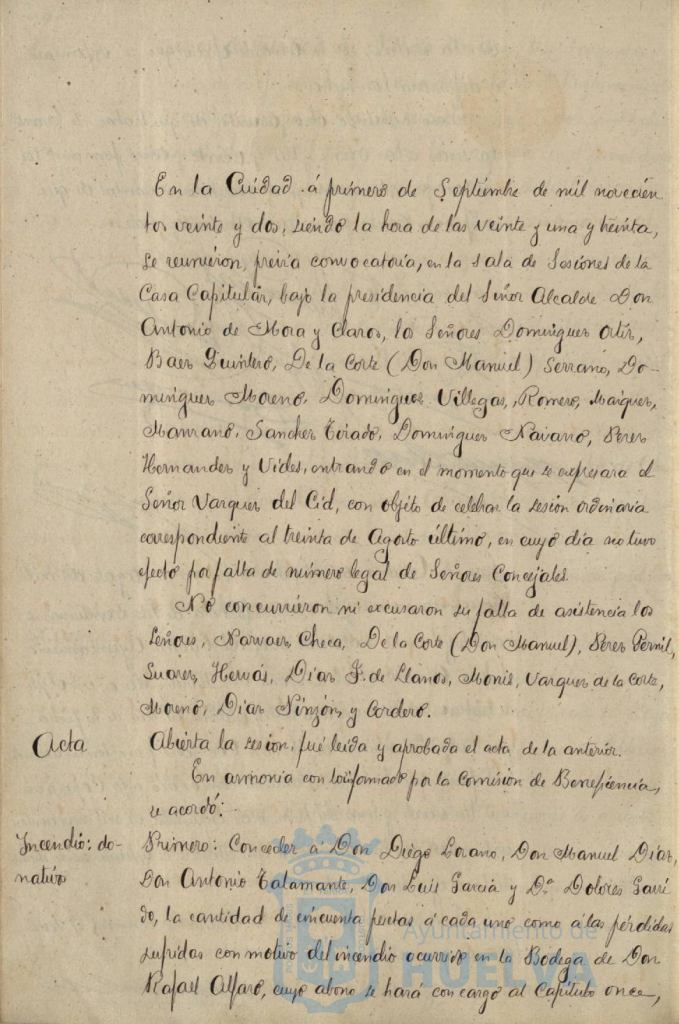 En la Ciudad á primero de Septiembre de mil novecien
tos veinte y dos, siendo la hora de las veinte y una y treinta,
se reunieron, previa convocatoria, en la sala de Sesiones de la
Casa Capitular, bajo la presidencia del Señor Alcalde Don
Antonio de Mora y Claros, los Señores Dominguez Ortíz,
Baez Quintero, De la Corte (Don Manuel) Serrano, Do-
minguez Moreno, Dominguez Villegas, Romero, Maiquez,
Manzano, Sanchez Tirado, Dominguez Navarro, Perez
Hernandez y Vides, entrando en el momento que se expresara el
Señor Vazquez del Cid, con objeto de celebrar la sesion ordinaria
correspondiente al treinta de Agosto último, en cuyo dia no tuvo
efecto por falta de número legal de Señores Concejales.
No concurrieron ni excusaron su falta de asistencia los
Señores, Narvaez, Checa, De la Corte (Don Manuel), Perez Pernil,
Suarez, Hervás, Diaz F. de Llanos, Monis, Vazquez de la Corte,
Moreno, Diaz Pinzón, y Cordero.
Acta
Abierta la sesion, fué leida y aprobada el acta de la anterior.
En armonia con lo informado por la Comision de Beneficencia,
se acordó:
Incendio: do-
nativo
Primero: Conceder á Don Diego Lorano, Don Manuel Diaz,
Don Antonio Talamante, Don Luis Garcia y Dª Dolores Garri
do, la cantidad de cincuenta pesetas á cada uno como á las pérdidas
sufridas con motivo del incendio ocurrido en la Bodega de Don
Rafael Alfaro, cuyo abono se hará con cargo al Capítulo once,
Ayuntamiento de
HUELVA